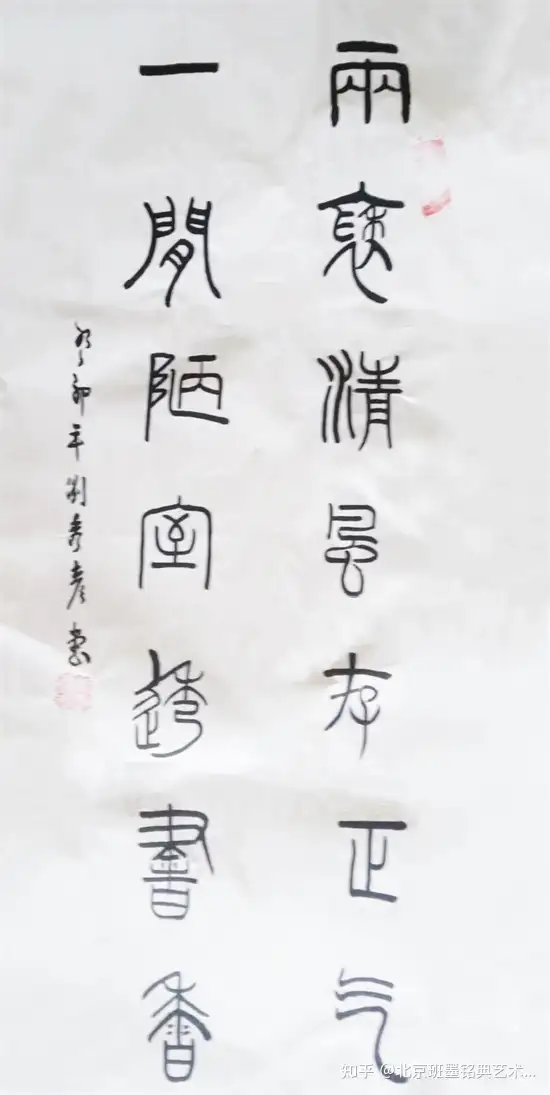 兩褎清風存正气
一閒陋室透書香
癸卯年刘秀彦書
知乎 @北京班墨铭典艺术...